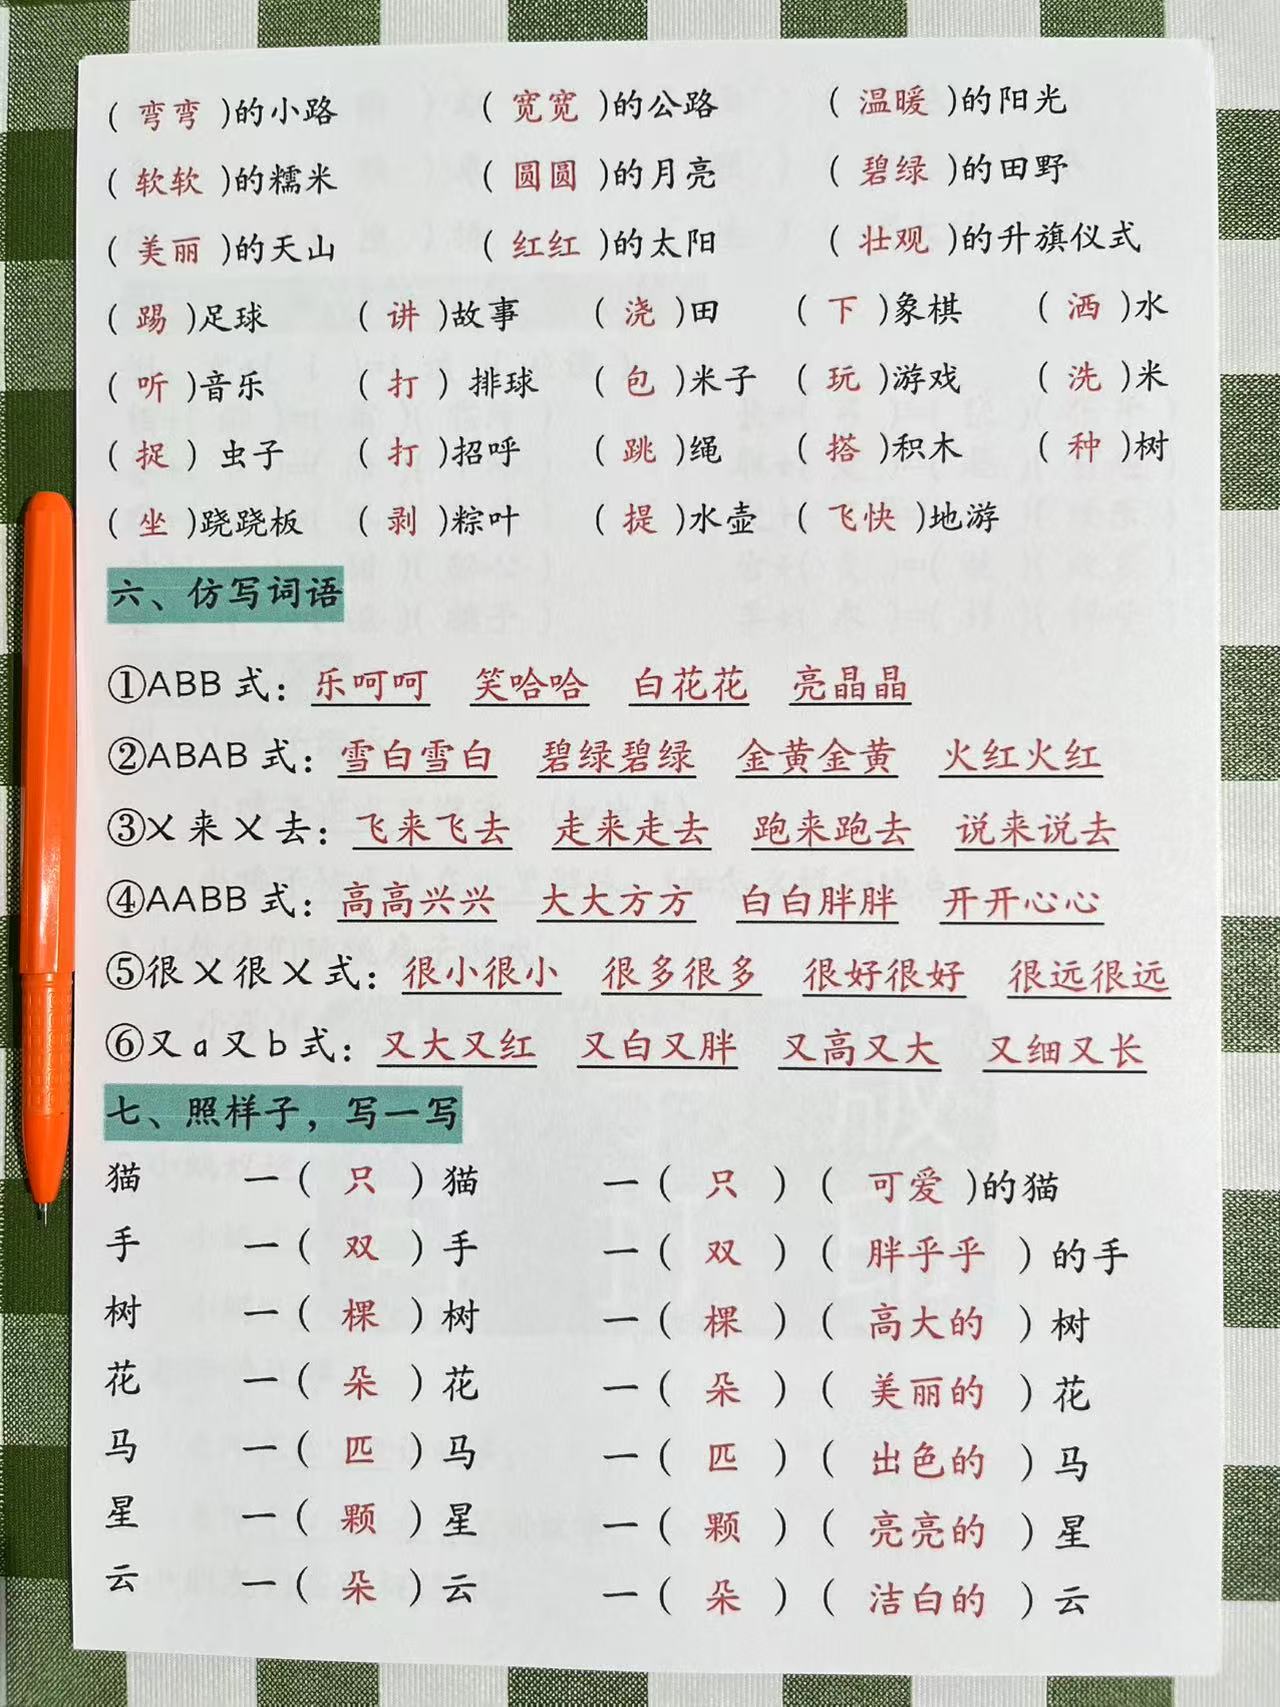 ( 弯弯 )的小路 ( 宽宽 )的公路 ( 温暖 )的阳光
( 软软 )的糯米 ( 圆圆 )的月亮 ( 碧绿 )的田野
( 美丽 )的天山 ( 红红 )的太阳 ( 壮观 )的升旗仪式
( 踢 )足球 ( 讲 )故事 ( 浇 )田 ( 下 )象棋 ( 洒 )水
( 听 )音乐 ( 打 ) 排球 ( 包 )米子 ( 玩 )游戏 ( 洗 )米
( 捉 ) 虫子 ( 打 )招呼 ( 跳 )绳 ( 搭 )积木 ( 种 )树
( 坐 )跷跷板 ( 剥 )粽叶 ( 提 )水壶 ( 飞快 )地游
六、仿写词语
①ABB 式：乐呵呵 笑哈哈 白花花 亮晶晶
②ABAB 式：雪白雪白 碧绿碧绿 金黄金黄 火红火红
③㐅来㐅去：飞来飞去 走来走去 跑来跑去 说来说去
④AABB 式：高高兴兴 大大方方 白白胖胖 开开心心
⑤很㐅很㐅式：很小很小 很多很多 很好很好 很远很远
⑥又 a 又 b 式：又大又红 又白又胖 又高又大 又细又长
七、照样子，写一写
猫 一( 只 )猫 一( 只 )( 可爱 )的猫
手 一( 双 )手 一( 双 )( 胖乎乎 )的手
树 一( 棵 )树 一( 棵 )( 高大的 )树
花 一( 朵 )花 一( 朵 )( 美丽的 )花
马 一( 匹 )马 一( 匹 )( 出色的 )马
星 一( 颗 )星 一( 颗 )( 亮亮的 )星
云 一( 朵 )云 一( 朵 )( 洁白的 )云